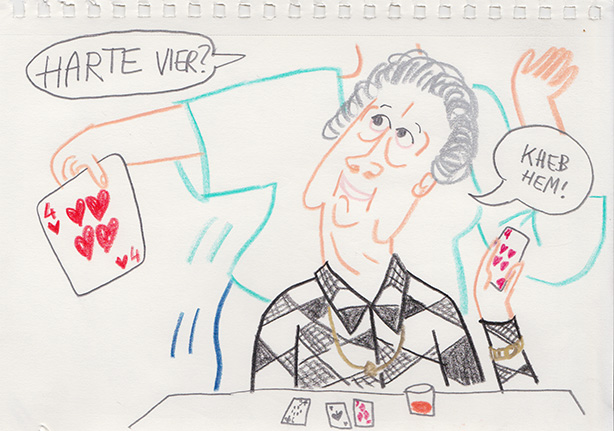 HARTE VIER?
KHEB
HEM!
4
4
4
4